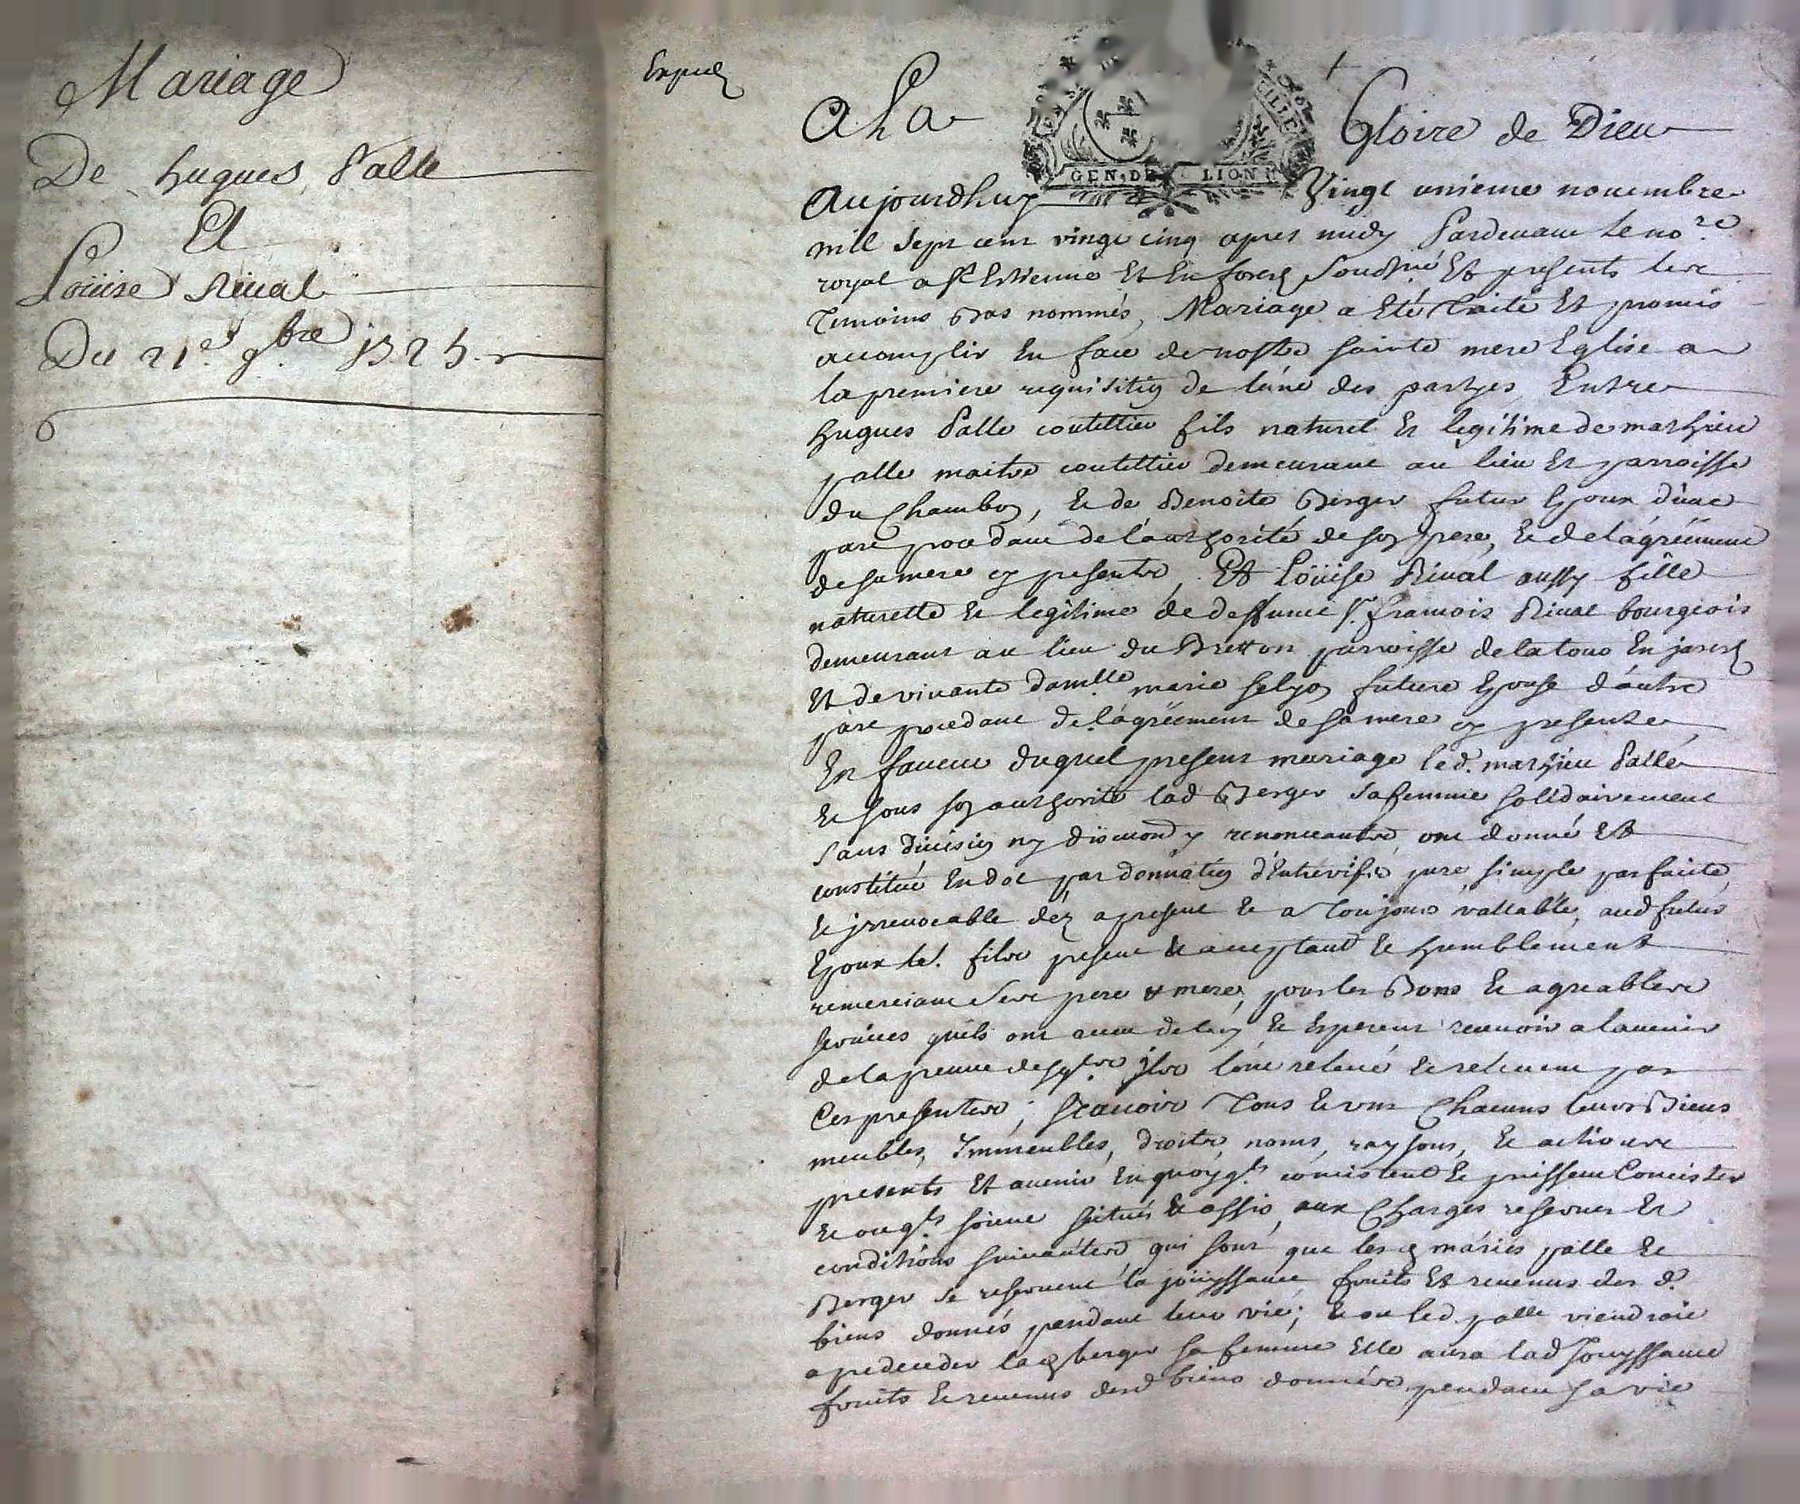 Mariage
De hugues Palle
Et
Loüise Rival
Du 21e 9bre 1725
Expedié
A La Gloire de Dieu
GEN, DE LION
Aujourdhuy Vingt unieme novembre
mil sept cent vingt cinq apres midy Pardevant le nore
royal a St Estienne Et En forest soussigné Et presents les
temoins bas nommés, Mariage a Eté traité Et promis
accomplir En face de nostre sainte mere Eglise a
la premiere requisition de l'une des partyes Entre
hugues Palle coutellier fils naturel et legitime de mathieu
palle maitre coutellier demeurant au lieu et parroisse
du Chambon, et de Benoite Berger futur Epoux d'une
part procedant de l'authorité de son pere, et de l'agréement
de sa mere cy presente, Et Loüise Rival aussy fille
naturelle et legitime de deffunct Sr. francois Rival bourgeois
demeurant au lieu du Bretton parroisse de la tour En jarest
Et de vivante damlle marie selyon future Epouse d'autre
part procedant de l'agréement de sa mere cy presente,
En faveur duquel present mariage led. mathieu Palle
et sous son authorité lad Berger sa femme solidairement
sans division ny discution y renonceants, ont donné Et
constitué En dot par donnation d'Entrevifs pure simple parfaite
et irrevocable dez a present et a toujours vallable, aud futur
Epoux le. fils present et acceptant et humblement
remerciant ses pere et mere, pour les Bons et agreables
services quils ont receu de luy et Esperent recevoir a lavenir
de la preuve desqls ils l'ont relevé et relevent par
Ces presentes; scavoir tous et uns Chacuns leurs Biens
meubles, Immeubles, droits, noms, raysons, et actions
presents Et avenir En quoyqls concistent et puissent Concister
et ou qls soient scitués et assis, aux Charges reserves Et
conditions suivantes, qui sont que lesd mariés palle et
Berger se reservent la joüyssance fruits Et revenus des d.
biens donnés pendant leur vie; et ou led palle viendroit
a predeceder lad berger sa femme Elle aura lad Jouyssance
fruits et revenus desd biens donnés pendant sa vie